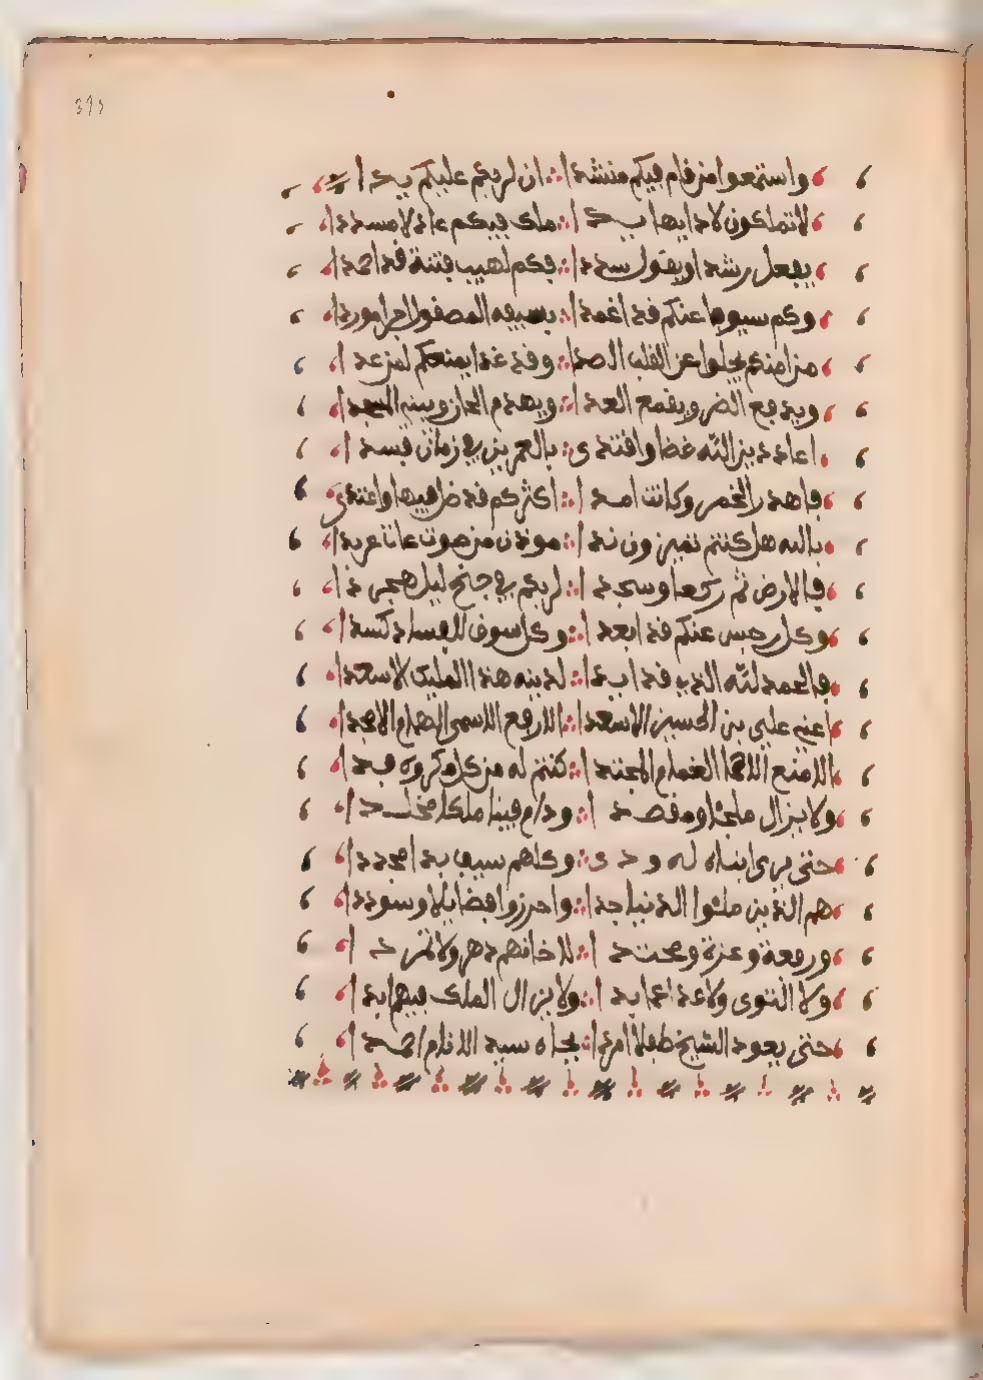 واستمعوا من قام فيكم منشدا ∴ ان لربكم عليكم يدا
لا تملكون لادايها يدا ∴ ملك فيكم عادلا مسددا
يفعل رشدا ويقول سددا ∴ فكم لهيب فتنة قد اخمدا
وكم سيوفا عنكم قد اغمدا ∴ بسيفه المصقول
من امنكم يجلوا عن القلب الصدا ∴ وقد غدا يمنعكم من عدا
ويدفع الضر ويقمع العدا ∴ ويهدم الحان ويبني المسجدا
اعاد دين الله غضا وافتدى ∴ بالعمرين في زمان فسدا
فاهدر الخمر وكانت امدا ∴ اكثركم قد ضل فيها واعتدى
بالله هل كنتم تميزون ندا ∴ موذن من صوت عات عربدا
في الارض ثم ركعا وسجدا ∴ لربكم في جنح ليل
وكل رجس عنكم قد ابعدا ∴ وكل سوق للفساد كسدا
فالحمد لله الذي قد ايدا ∴ لدينه هذا المليك الاسعدا
اعني علي بن الحسين الاسعدا ∴ الارفع الاسمى الهمام الامجدا
الامنع الاحما الغمام المجتدا ∴ كنتم له من كل مكروه فدا
ولا يزال ملجئا ومقصدا ∴ ودام فينا ملكا مخلدا
حتى يرى ابناه له ودى ∴ وكلهم سيب يدا مجددا
هم الذين ملئوا الدنيا جدا ∴ واحرزوا فضايلا وسوددا
ورفعة وعزة ومحتدا ∴ لا خانهم دهر ولا تمردا
ولا التوى ولا عدا عما بدا ∴ ولا يزال الملك فيهم ابدا
حتى يعود الشيخ طفلا امردا ∴ بجاه سيد الانام احمدا